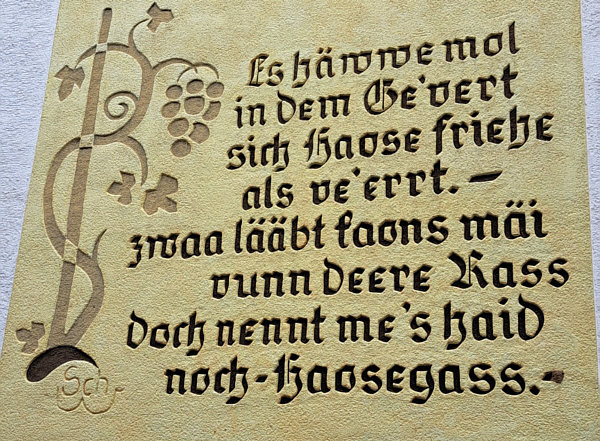 Es häwwe mol
in dem Ge'vert
sich Haose friehe
als ve'errt. –
zwaa lääbt kaons mäi
vunn deere Rass
doch nennt me's haid
noch-Haosegass.-
Sch